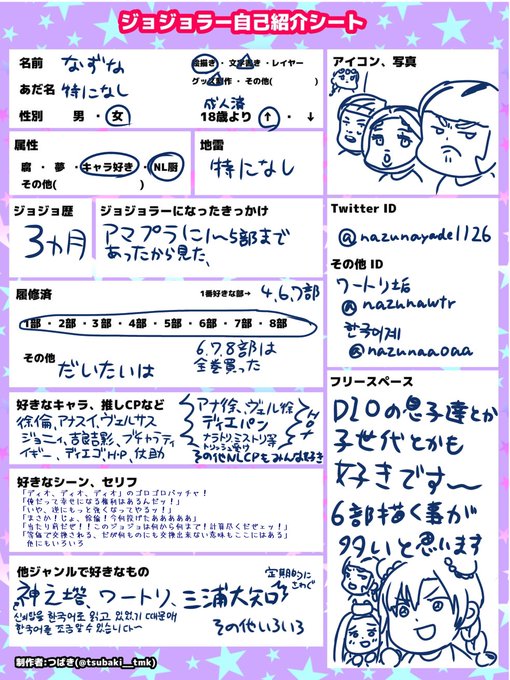 ジョジョラー自己紹介シート
名前 なずな
あだ名 特になし
性別 男・女
絵描き・文字書き・レイヤー
グッズ制作・その他( )
成人済
18歳より ↑・↓
アイコン、写真
属性
腐・夢・キャラ好き・NL厨
その他( )
地雷
特になし
ジョジョ歴
3ヵ月
ジョジョラーになったきっかけ
アマプラに1〜5部まで
あったから見た、
Twitter ID
@nazunayade1126
その他 ID
ワートリ垢
@nazunawtr
한국어계
@nazunaaoaa
履修済 1番好きな部→ 4,6,7部
1部・2部・3部・4部・5部・6部・7部・8部
その他 だいたいは
6.7.8部は
全巻買った
好きなキャラ、推しCPなど
徐倫、アナスイ、ヴェルサス
ジョニィ、吉良吉影、ブチャラティ
イギー、ディエゴ、H・P、仗助
アナ徐、ヴェル徐
ディエパン
ナラトリ、ミストリ等
トリッシュ受け
その他NLCPもみんな好き
HOT
フリースペース
DIOの息子達とか
子世代とかも
好きです〜
6部描く事が
多いと思います
好きなシーン、セリフ
「ディオ、ディオ、ディオ」のゴロゴロパッチャ!
「俺だって幸せになる権利はあるんだッ!」
「いや、逆にもっと強くなってやるッ!」
「まさか!じょ、徐倫!今何投げたああああああ」
「当たり前だぜ!!このジョジョは何から何まで!計算尽くだぜェッ!」
「等価で交換される、だが何ものにも交換出来ない意味もここにはある」
他にもいろいろ
他ジャンルで好きなもの
神之塔、ワートリ、三浦大知
定期的に
さわぐ
신의탑을 한국어로 읽고 있었기 때문에
한국어를 조금 할 수 있습니다〜
その他いろいろ
制作者:つばき(@tsubaki__tmk)